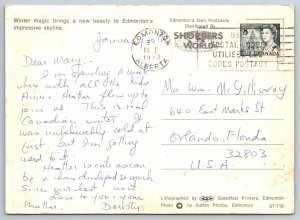 Winter magic brings a new beauty to Edmonton's
impressive skyline.
Edmonton's Own Postcards
Distributed By
SHOPPERS
WORLD
EDMONTON
ALBERTA
UTILISEZ
CODES POSTAUX
CANADA
8
Dear Mary:-
I'm spending a week
here with all the
to
us. This is real
Canadian winter. It
was unbelievably cold at
first, but I'm getting
used to it.
Heather is cute as can
be & has changed so much
Since you last
love to you - your
mother. Dorothy
Mrs. Wm. McGillivray
640 East Marks St
Orlando, Florida
32803
U.S.A.
Lithographed by Speedfast Printers, Edmonton
Photo by Sutton Photos, Edmonton ST-710